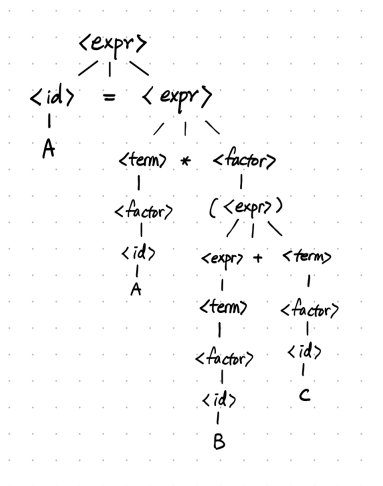 <expr>
<id> = <expr>
A
<term> * <factor>
<factor> (<expr>)
<id> <expr> + <term>
A
<term> <factor>
<factor> <id>
<id> C
B